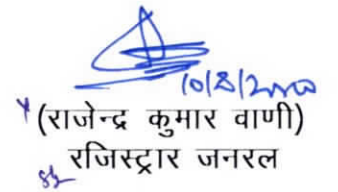 10/8/2020
(राजेन्द्र कुमार वाणी)
रजिस्ट्रार जनरल